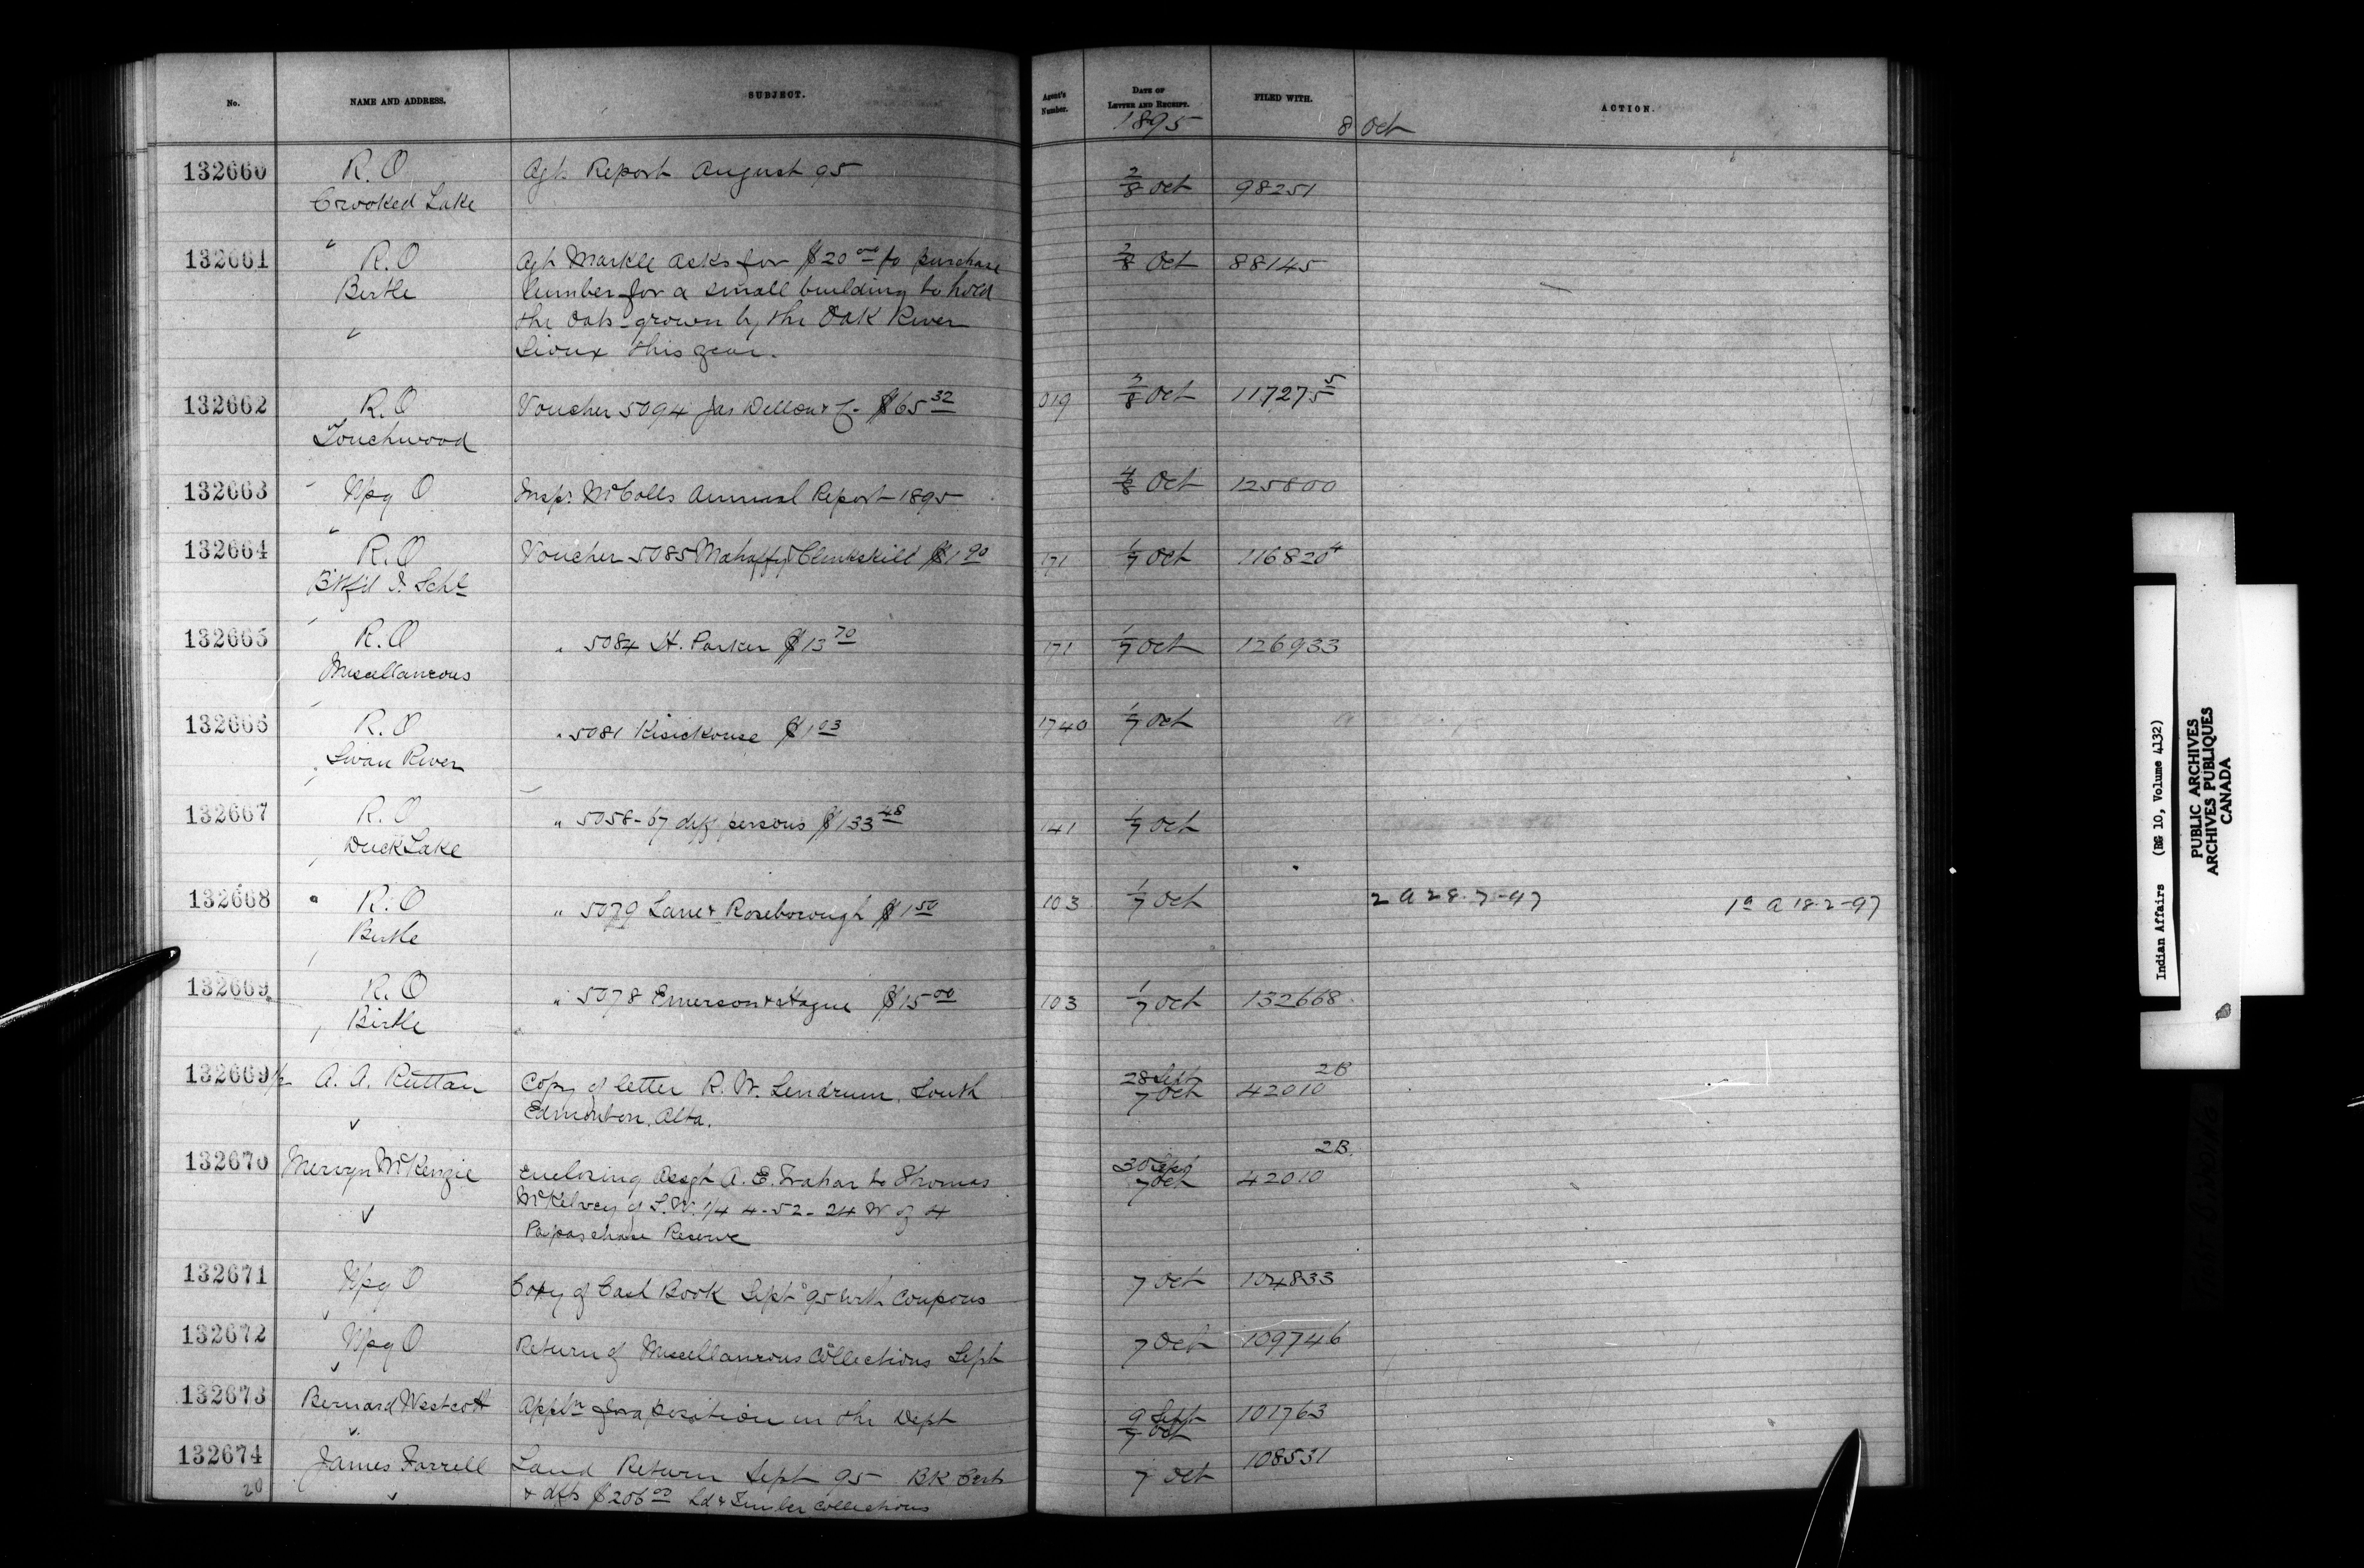 No. NAME AND ADDRESS. SUBJECT. Agent's Number. DATE OF LETTER AND RECEIPT. FILED WITH. ACTION.
1895 8 Oct
132660 R. O Agt. Report August 95 2/8 Oct 98251
Crooked Lake
132661 R. O Agt. Markle asks for $20 00 to purchase 2/8 Oct 88145
Birtle lumber for a small building to hold
the oats grown by the Oak River
Sioux this year.
132662 R. O Voucher 5094 Jas $65 32 019 Oct 117275 5
Touchwood
132663 Wpg O Inspr. McColls Annual Report 1895 4/8 Oct 125800
132664 R. O Voucher 5085 Mahaffy & Clinkskill $1 90 171 1/7 Oct 116820 4
Btlfd I. Schl
132665 R. O " 5084 H. Parker $13 70 171 1/7 Oct 126933
Miscellaneous
132666 R. O " 5081 Kisickouse $1 03 1740 1/7 Oct
Swan River
132667 R. O " 5058-67 diff persons $133 48 141 1/7 Oct
Duck Lake
132668 R. O " 5079 Lane & Roseborough $1 50 103 1/7 Oct 2 a 28.7-97 1a a 18.2-97
Birtle
132669 R. O " 5078 Emerson & Hague $15 00 103 1/7 Oct 132668
Birtle
132669 1/2 A. A. Ruttan Copy of letter R. W. Lendrum, South 28 Sept 7 Oct 42010 2B
Edmonton, Alta.
132670 Mervyn McKenzie Enclosing Assgt A. E. Trahan to Thomas 30 Sept 7 Oct 42010 2B.
McKelvey of S.W. 1/4 4-52-24 W of 4
Papaschase Reserve
132671 Wpg O Copy of Cash Book Sept 95 with coupons 7 Oct 104833
132672 Wpg O Return of Miscellaneous Collections Sept 7 Oct 109746
132673 Bernard Westcott Appln for a position in the Dept 9 Sept 7 Oct 101763
132674 James Farrell Land Return Sept 95 Bk Certs 7 Oct 108531
20 & dfts $206 00 Ld & Timber collections
Indian Affairs (RG 10, Volume 4132)
PUBLIC ARCHIVES
ARCHIVES PUBLIQUES
CANADA